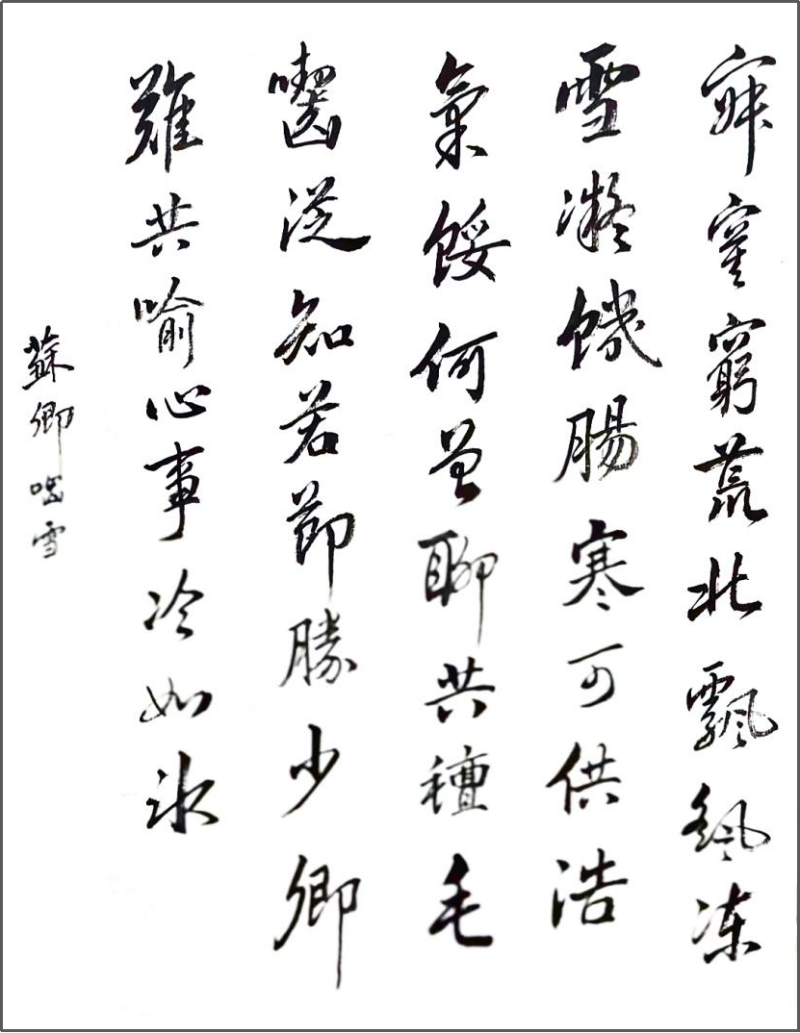 穽窖窮荒北飄飖凍
雪凝饑腸寒可供浩
氣餒何曾聊共氊毛
齧從知苦節勝少卿
難共喻心事冷如冰
蘇卿嚙雪